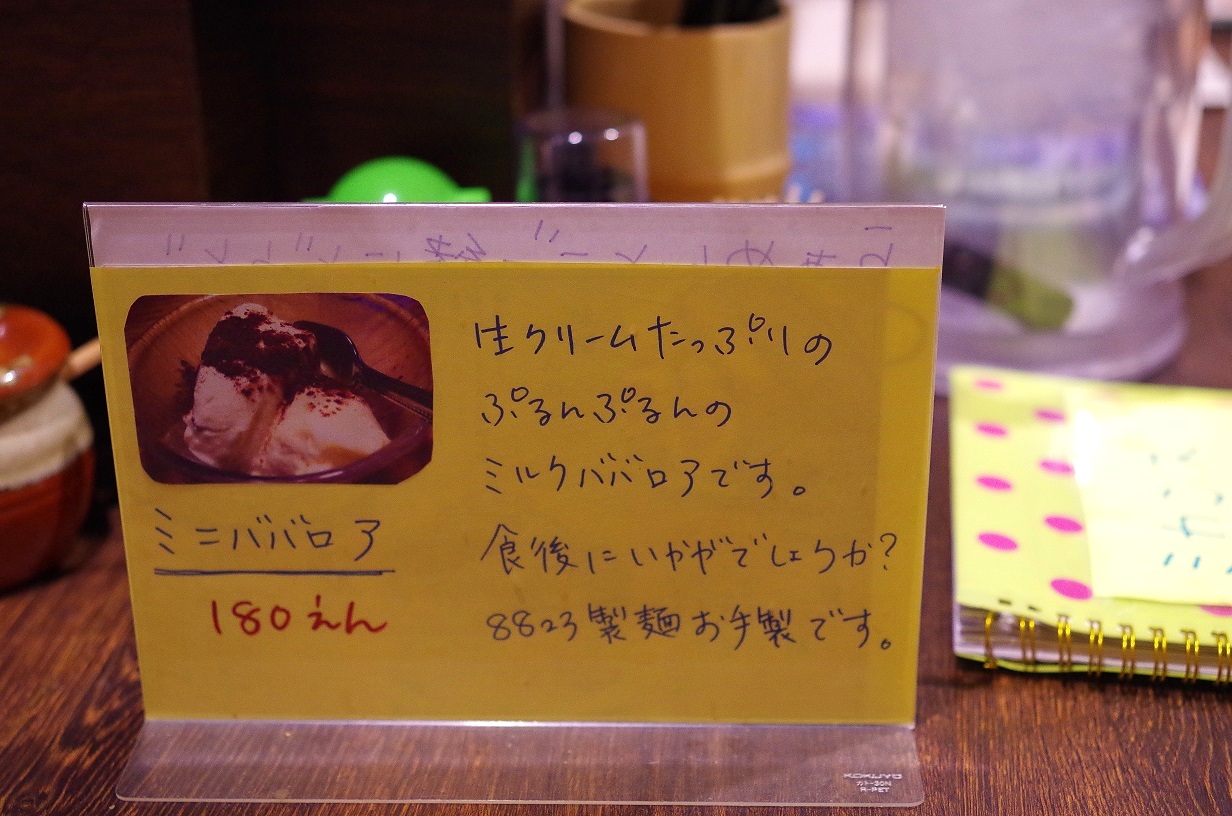 生クリームたっぷりの
ぷるんぷるんの
ミルクババロアです。
食後にいかがでしょうか?
8823製麺お手製です。
ミニババロア
180えん
KOKUYO
カト-30N
R-PET